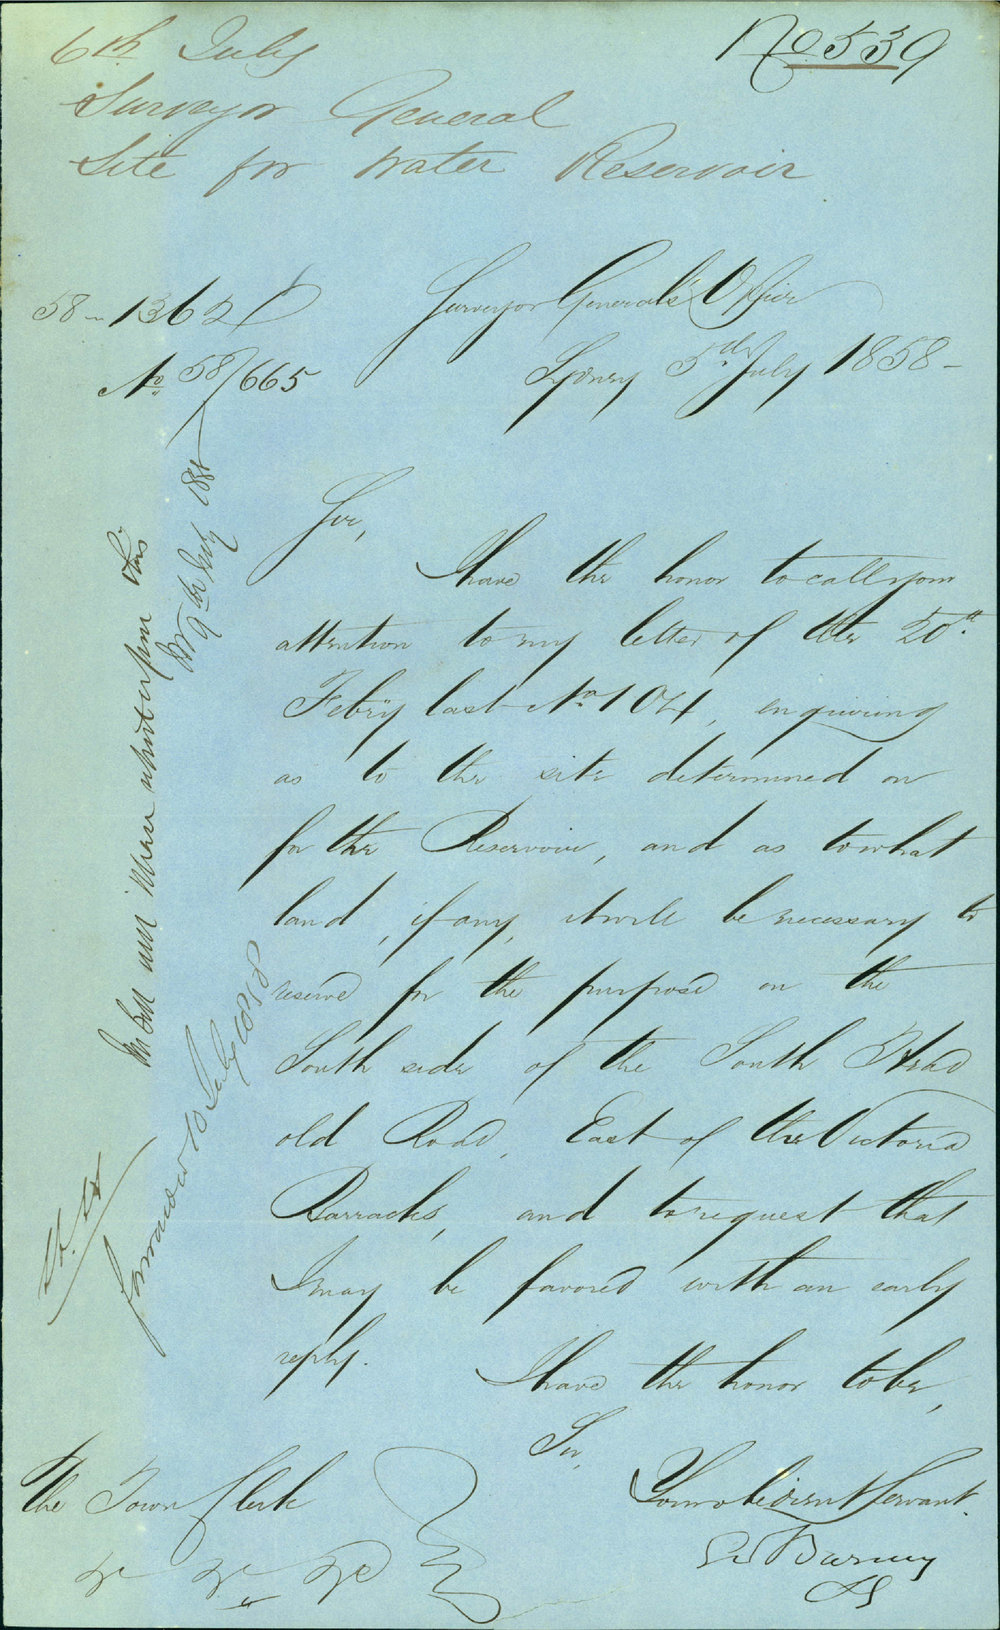 No 539
6th July
Surveyor General
Site for Water Reservoir
58-1362
Surveyor General's Office
No 58/665
Sydney 5th July 1858-
Sir,
I have the honor to call your
attention to my letter of the 20th
Febry last No 104, enquiring
as to the site determined on
for the Reservoir, and as to what
land, if any, it will be necessary to
reserve for the purpose on the
South side of the South Head
old Road, East of the Victoria
Barracks, and to request that
I may be favored with an early
reply.
I have the honor to be,
Sir,
Your obedient Servant.
Barney
SG
The Town Clerk
&c &c &c
this
9th July
10 July 1858